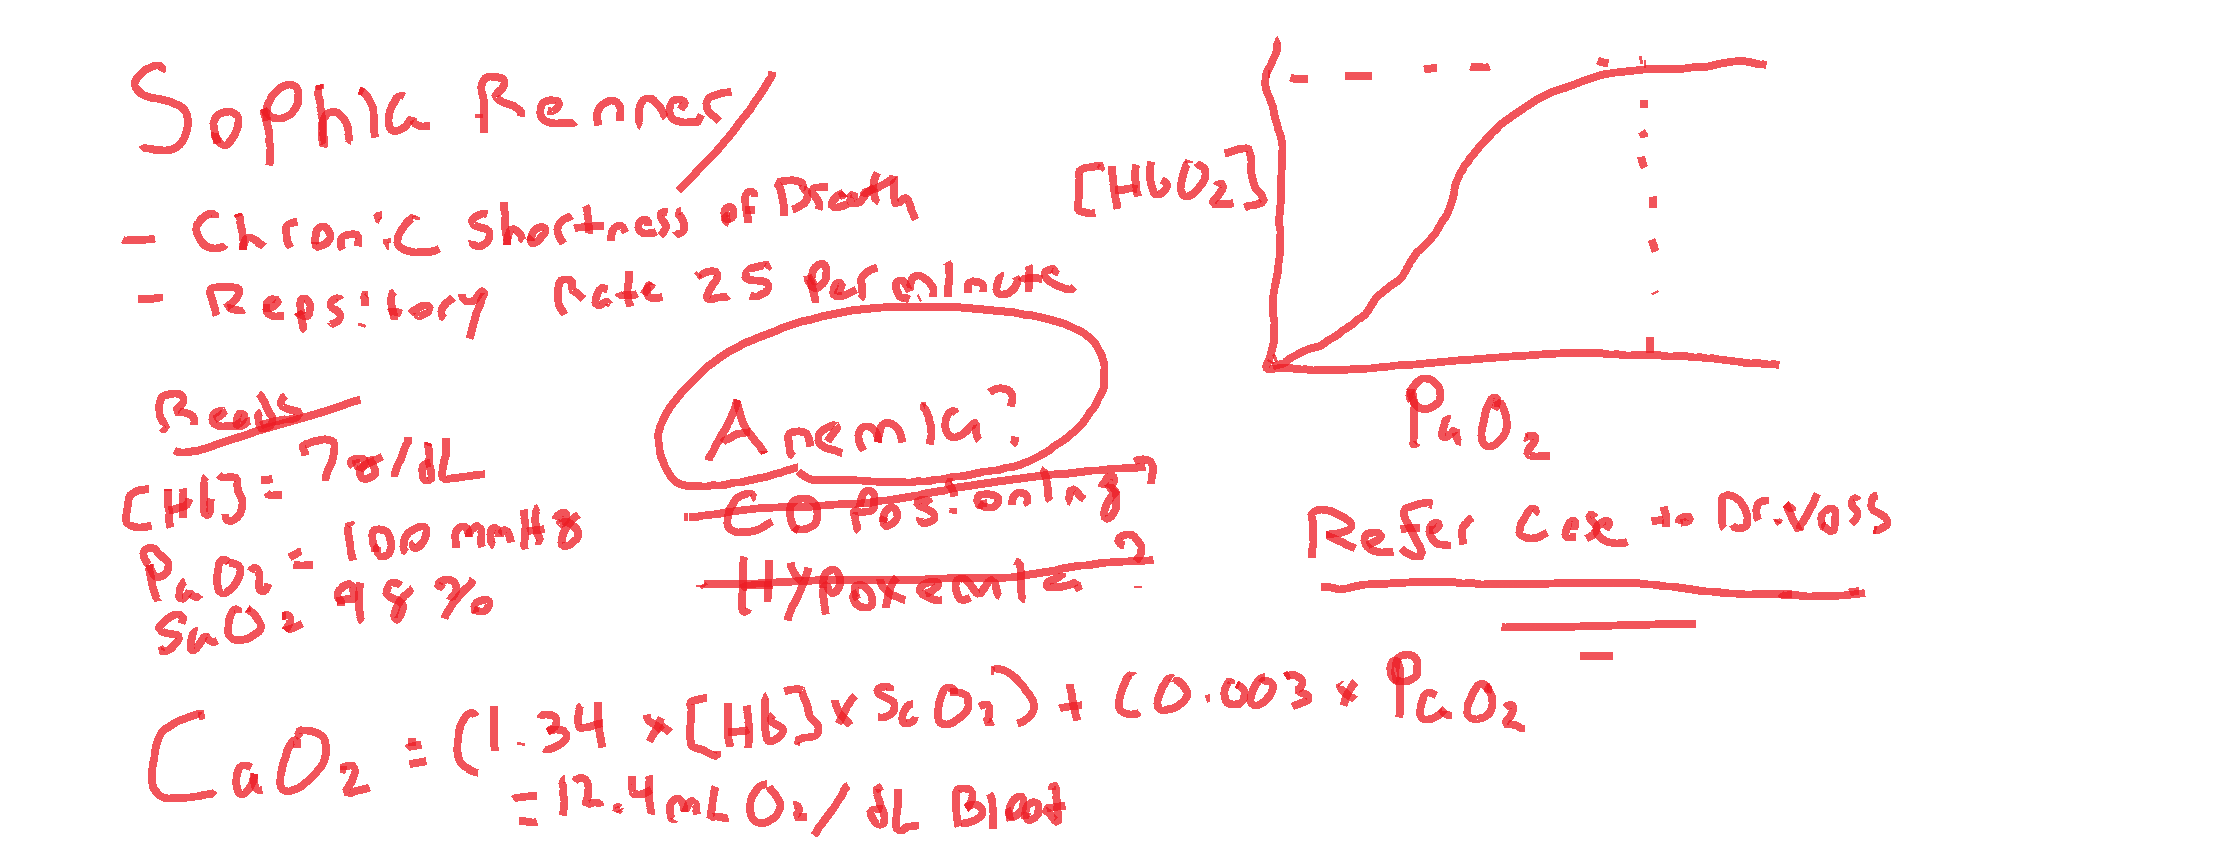 Sophia Renner
- Chronic Shortness of Breath
- Repsitory Rate 25 Per minute
Reads
[Hb] = 7g/dL
PaO2 = 100 mmHg
SaO2 98%
Anemia?
CO Posioning?
Hypoxemia?
[HbO2]
PaO2
Refer Case to Dr. Voss
CaO2 = (1.34 × [Hb] × SaO2) + (0.003 × PaO2
= 12.4 mL O2/dL Blood